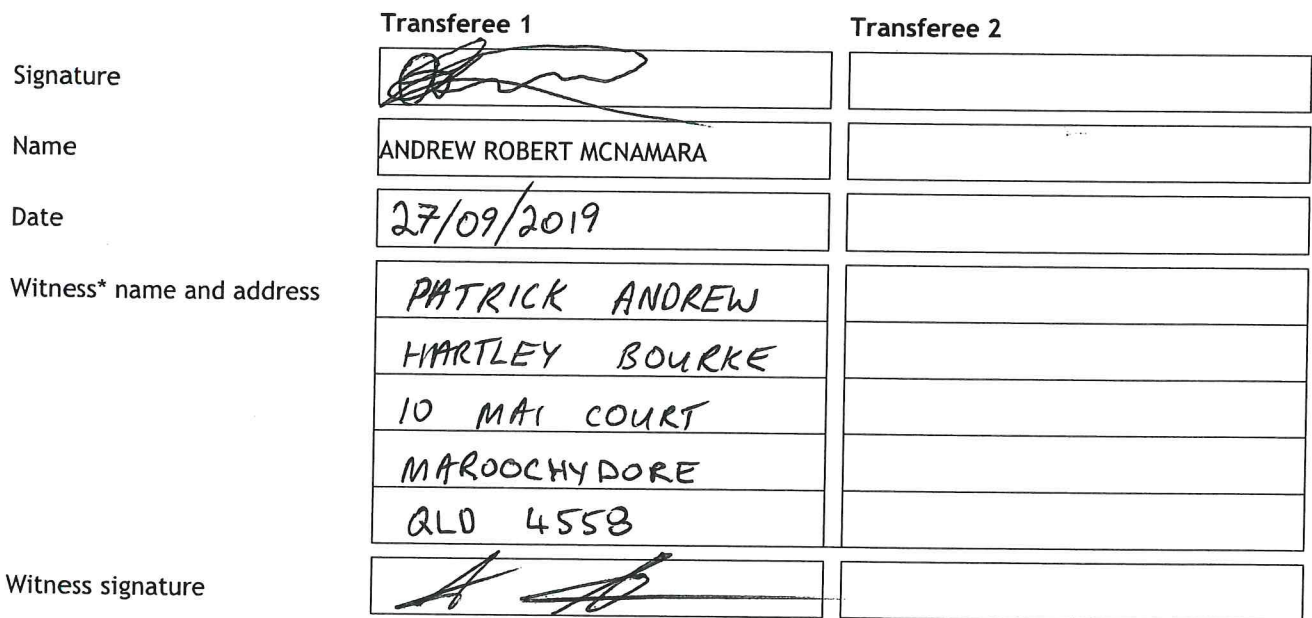 Transferee 1 Transferee 2
Signature
Name ANDREW ROBERT MCNAMARA
Date 27/09/2019
Witness* name and address PATRICK ANDREW
HARTLEY BOURKE
10 MAI COURT
MAROOCHYDORE
QLD 4558
Witness signature